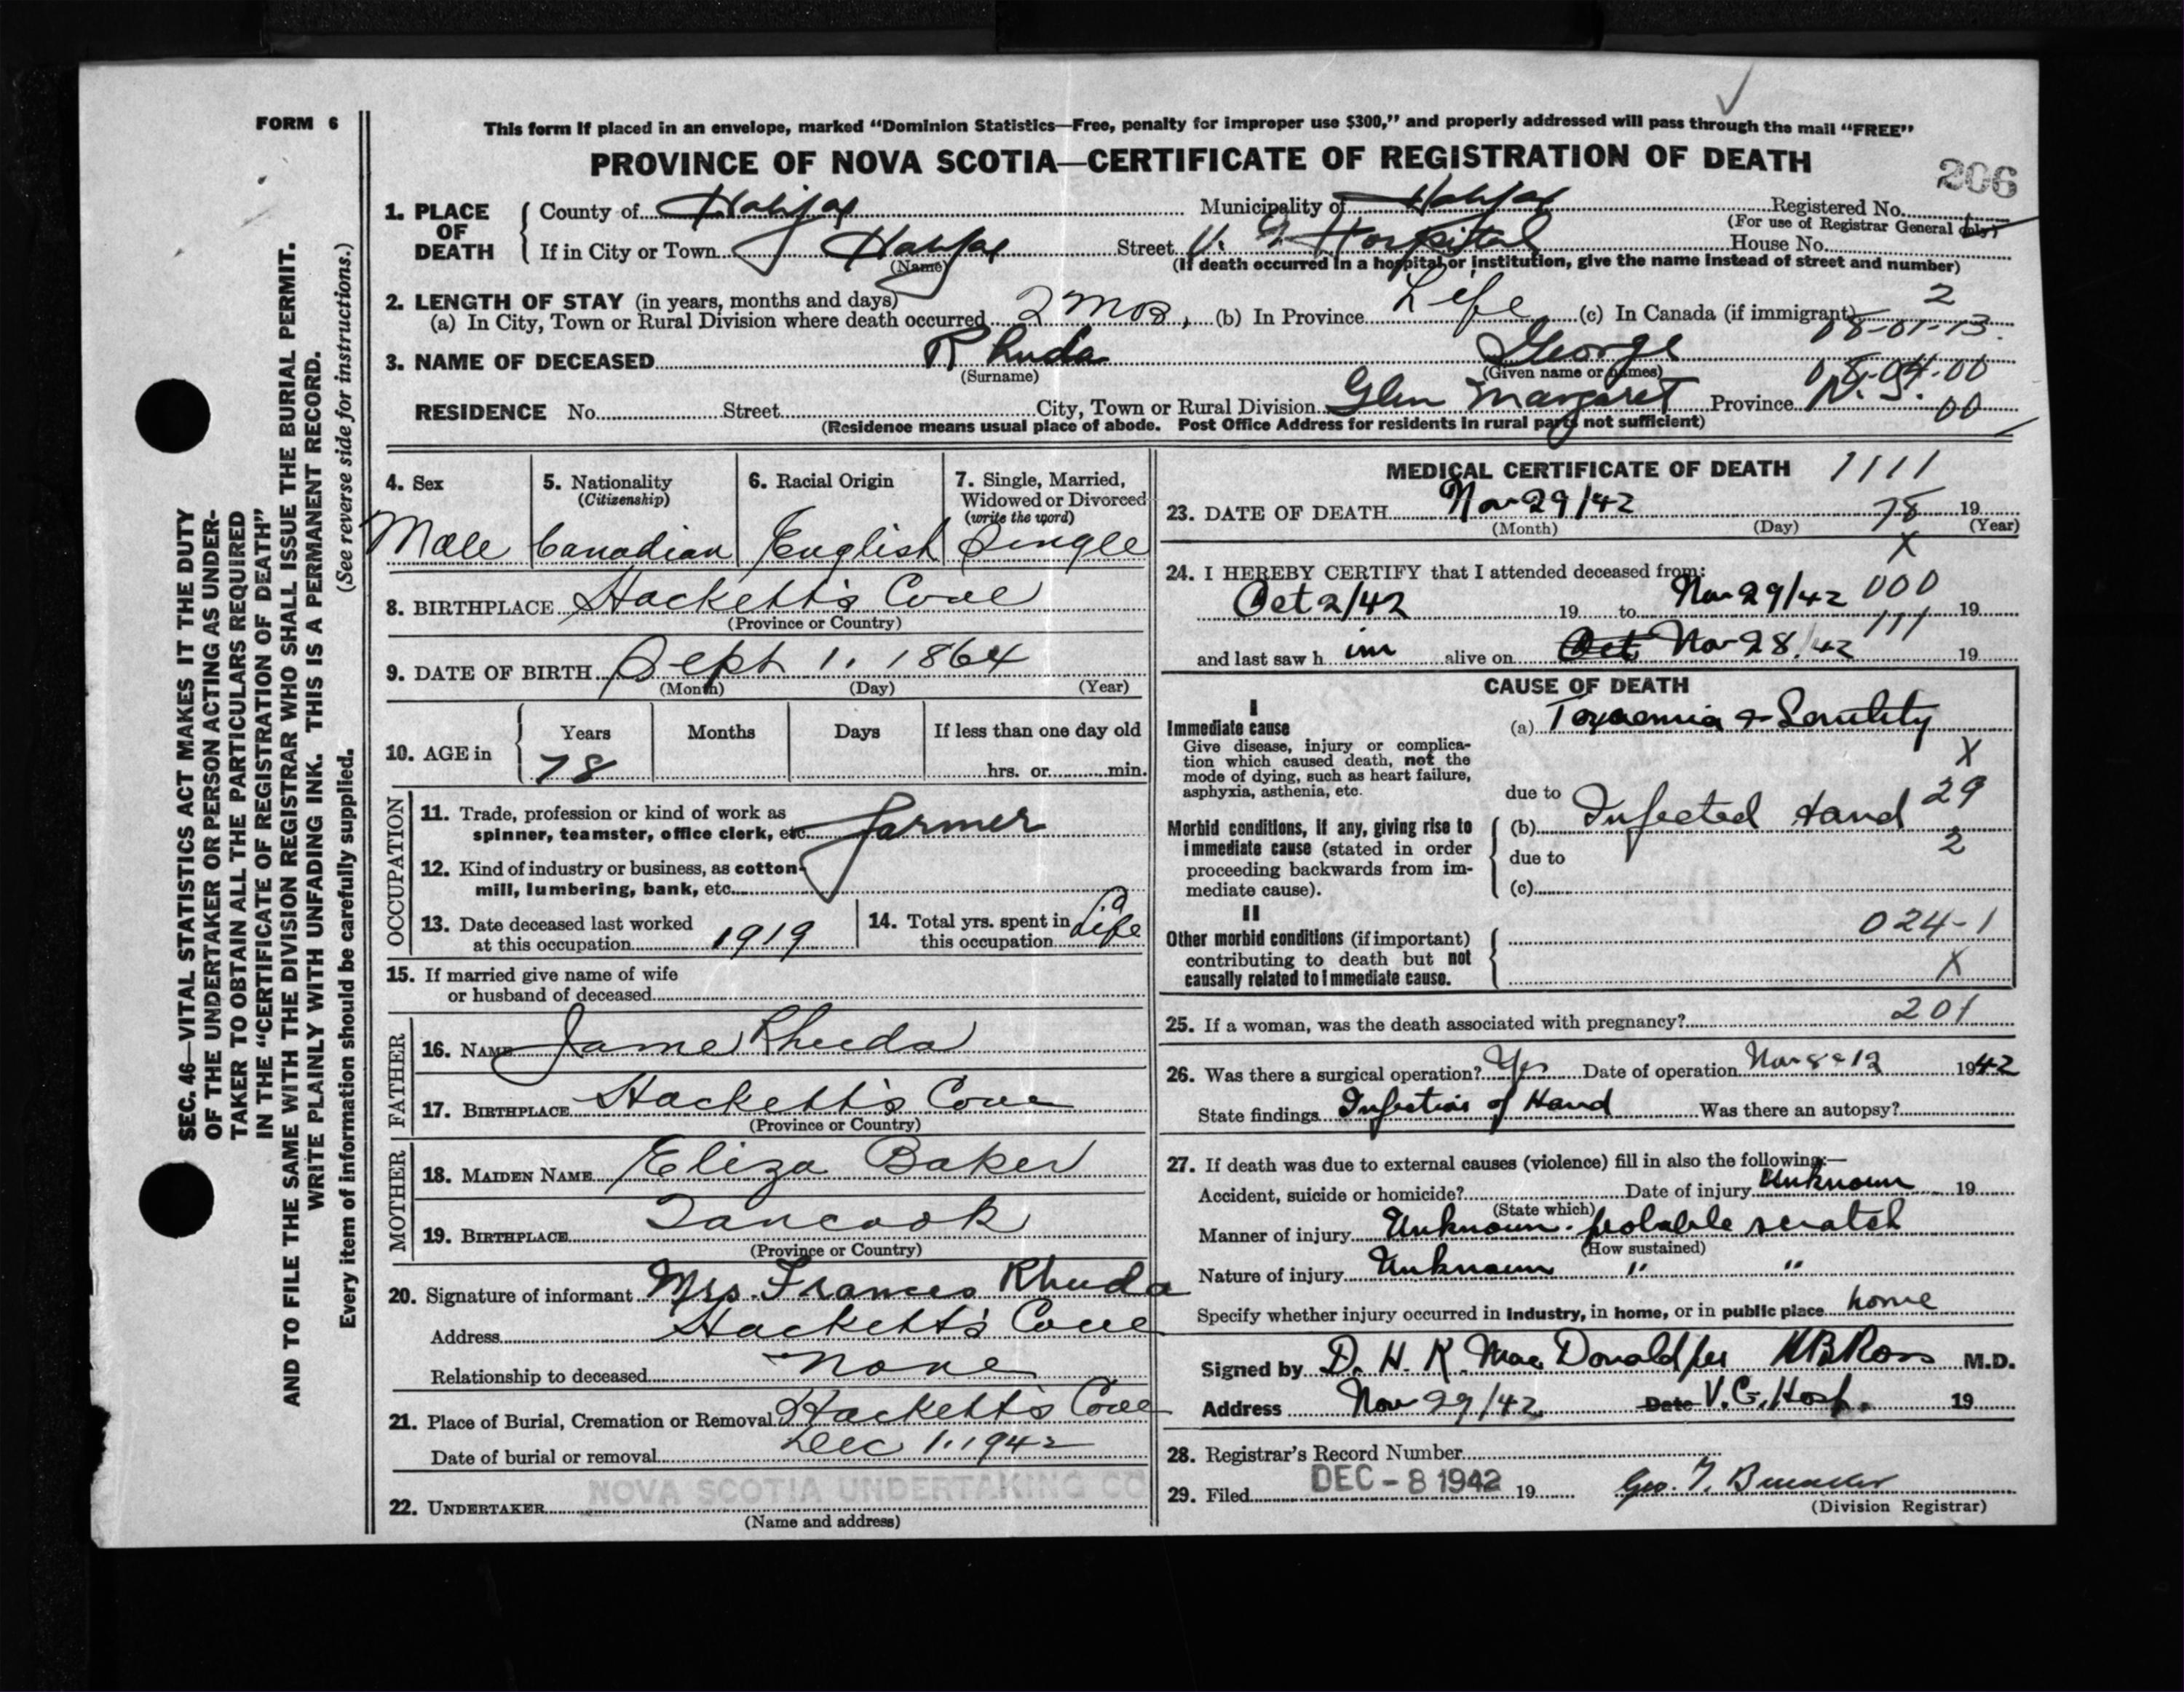 FORM 6
This form if placed in an envelope, marked "Dominion Statistics—Free, penalty for improper use $300," and properly addressed will pass through the mail "FREE"
PROVINCE OF NOVA SCOTIA—CERTIFICATE OF REGISTRATION OF DEATH
206
1. PLACE OF DEATH County of Halifax Municipality of Halifax Registered No.
(For use of Registrar General only)
If in City or Town Halifax Street V. G Hospital House No.
(Name) (If death occurred in a hospital or institution, give the name instead of street and number)
2. LENGTH OF STAY (in years, months and days) 2
(a) In City, Town or Rural Division where death occurred 2 mos, (b) In Province Life (c) In Canada (if immigrant) 08-01-13.
3. NAME OF DECEASED Rhuda George
(Surname) (Given name or names) 08-04-00
RESIDENCE No. Street City, Town or Rural Division Glen Margaret Province N.S. 00
(Residence means usual place of abode. Post Office Address for residents in rural parts not sufficient)
SEC. 46—VITAL STATISTICS ACT MAKES IT THE DUTY
OF THE UNDERTAKER OR PERSON ACTING AS UNDER-
TAKER TO OBTAIN ALL THE PARTICULARS REQUIRED
IN THE "CERTIFICATE OF REGISTRATION OF DEATH"
AND TO FILE THE SAME WITH THE DIVISION REGISTRAR WHO SHALL ISSUE THE BURIAL PERMIT.
WRITE PLAINLY WITH UNFADING INK. THIS IS A PERMANENT RECORD.
Every item of information should be carefully supplied. (See reverse side for instructions.)
4. Sex 5. Nationality 6. Racial Origin 7. Single, Married,
(Citizenship) Widowed or Divorced
(write the word)
Male Canadian English Single
8. BIRTHPLACE Hackett's Cove
(Province or Country)
9. DATE OF BIRTH Sept 1. 1864
(Month) (Day) (Year)
10. AGE in Years Months Days If less than one day old
78 hrs. or min.
OCCUPATION
11. Trade, profession or kind of work as
spinner, teamster, office clerk, etc. farmer
12. Kind of industry or business, as cotton-
mill, lumbering, bank, etc.
13. Date deceased last worked
at this occupation 1919
14. Total yrs. spent in
this occupation Life
15. If married give name of wife
or husband of deceased
FATHER
16. NAME Jame Rhuda
17. BIRTHPLACE Hackett's Cove
(Province or Country)
MOTHER
18. MAIDEN NAME Eliza Baker
19. BIRTHPLACE Tancook
(Province or Country)
20. Signature of informant Mrs. Frances Rhuda
Address Hackett's Cove
Relationship to deceased none
21. Place of Burial, Cremation or Removal Hackett's Cove
Date of burial or removal Dec 1. 1942
22. UNDERTAKER NOVA SCOTIA UNDERTAKING CO
(Name and address)
MEDICAL CERTIFICATE OF DEATH 1111
23. DATE OF DEATH Nov 29/42 78 19
(Month) (Day) (Year)
X
24. I HEREBY CERTIFY that I attended deceased from:
Oct 2/42 19 to Nov 29/42 000 19
111
and last saw h im alive on Oct Nov 28. 42 19
CAUSE OF DEATH
I
Immediate cause (a) Toxaemia & Senility
Give disease, injury or complica-
tion which caused death, not the X
mode of dying, such as heart failure,
asphyxia, asthenia, etc. due to 29
Morbid conditions, if any, giving rise to (b) Infected Hand
immediate cause (stated in order 2
proceeding backwards from im- due to
mediate cause). (c)
II
024-1
Other morbid conditions (if important)
contributing to death but not X
causally related to immediate cause.
25. If a woman, was the death associated with pregnancy? 201
26. Was there a surgical operation? Yes Date of operation Nov 8 & 12 1942
State findings Infection of Hand Was there an autopsy?
27. If death was due to external causes (violence) fill in also the following:—
Accident, suicide or homicide? Date of injury Unknown 19
(State which)
Manner of injury Unknown. probable scratch
(How sustained)
Nature of injury Unknown " "
Specify whether injury occurred in industry, in home, or in public place home
Signed by D. H. K. MacDonald per HBRoss M.D.
Address Nov 29/42 Date V.G. Hosp. 19
28. Registrar's Record Number
29. Filed DEC - 8 1942 19
(Division Registrar)